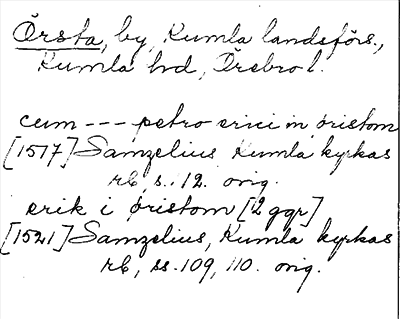 Örsta, by, Kumla landsförs.,
Kumla hd, Örebro l.
cum --- petro erici in øristom
[1517] Samzelius Kumla kyrkas
rb, s. 12. orig.
erik i øristom [2 ggr]
[1521] Samzelius, Kumla kyrkas
rb, ss. 109, 110. orig.